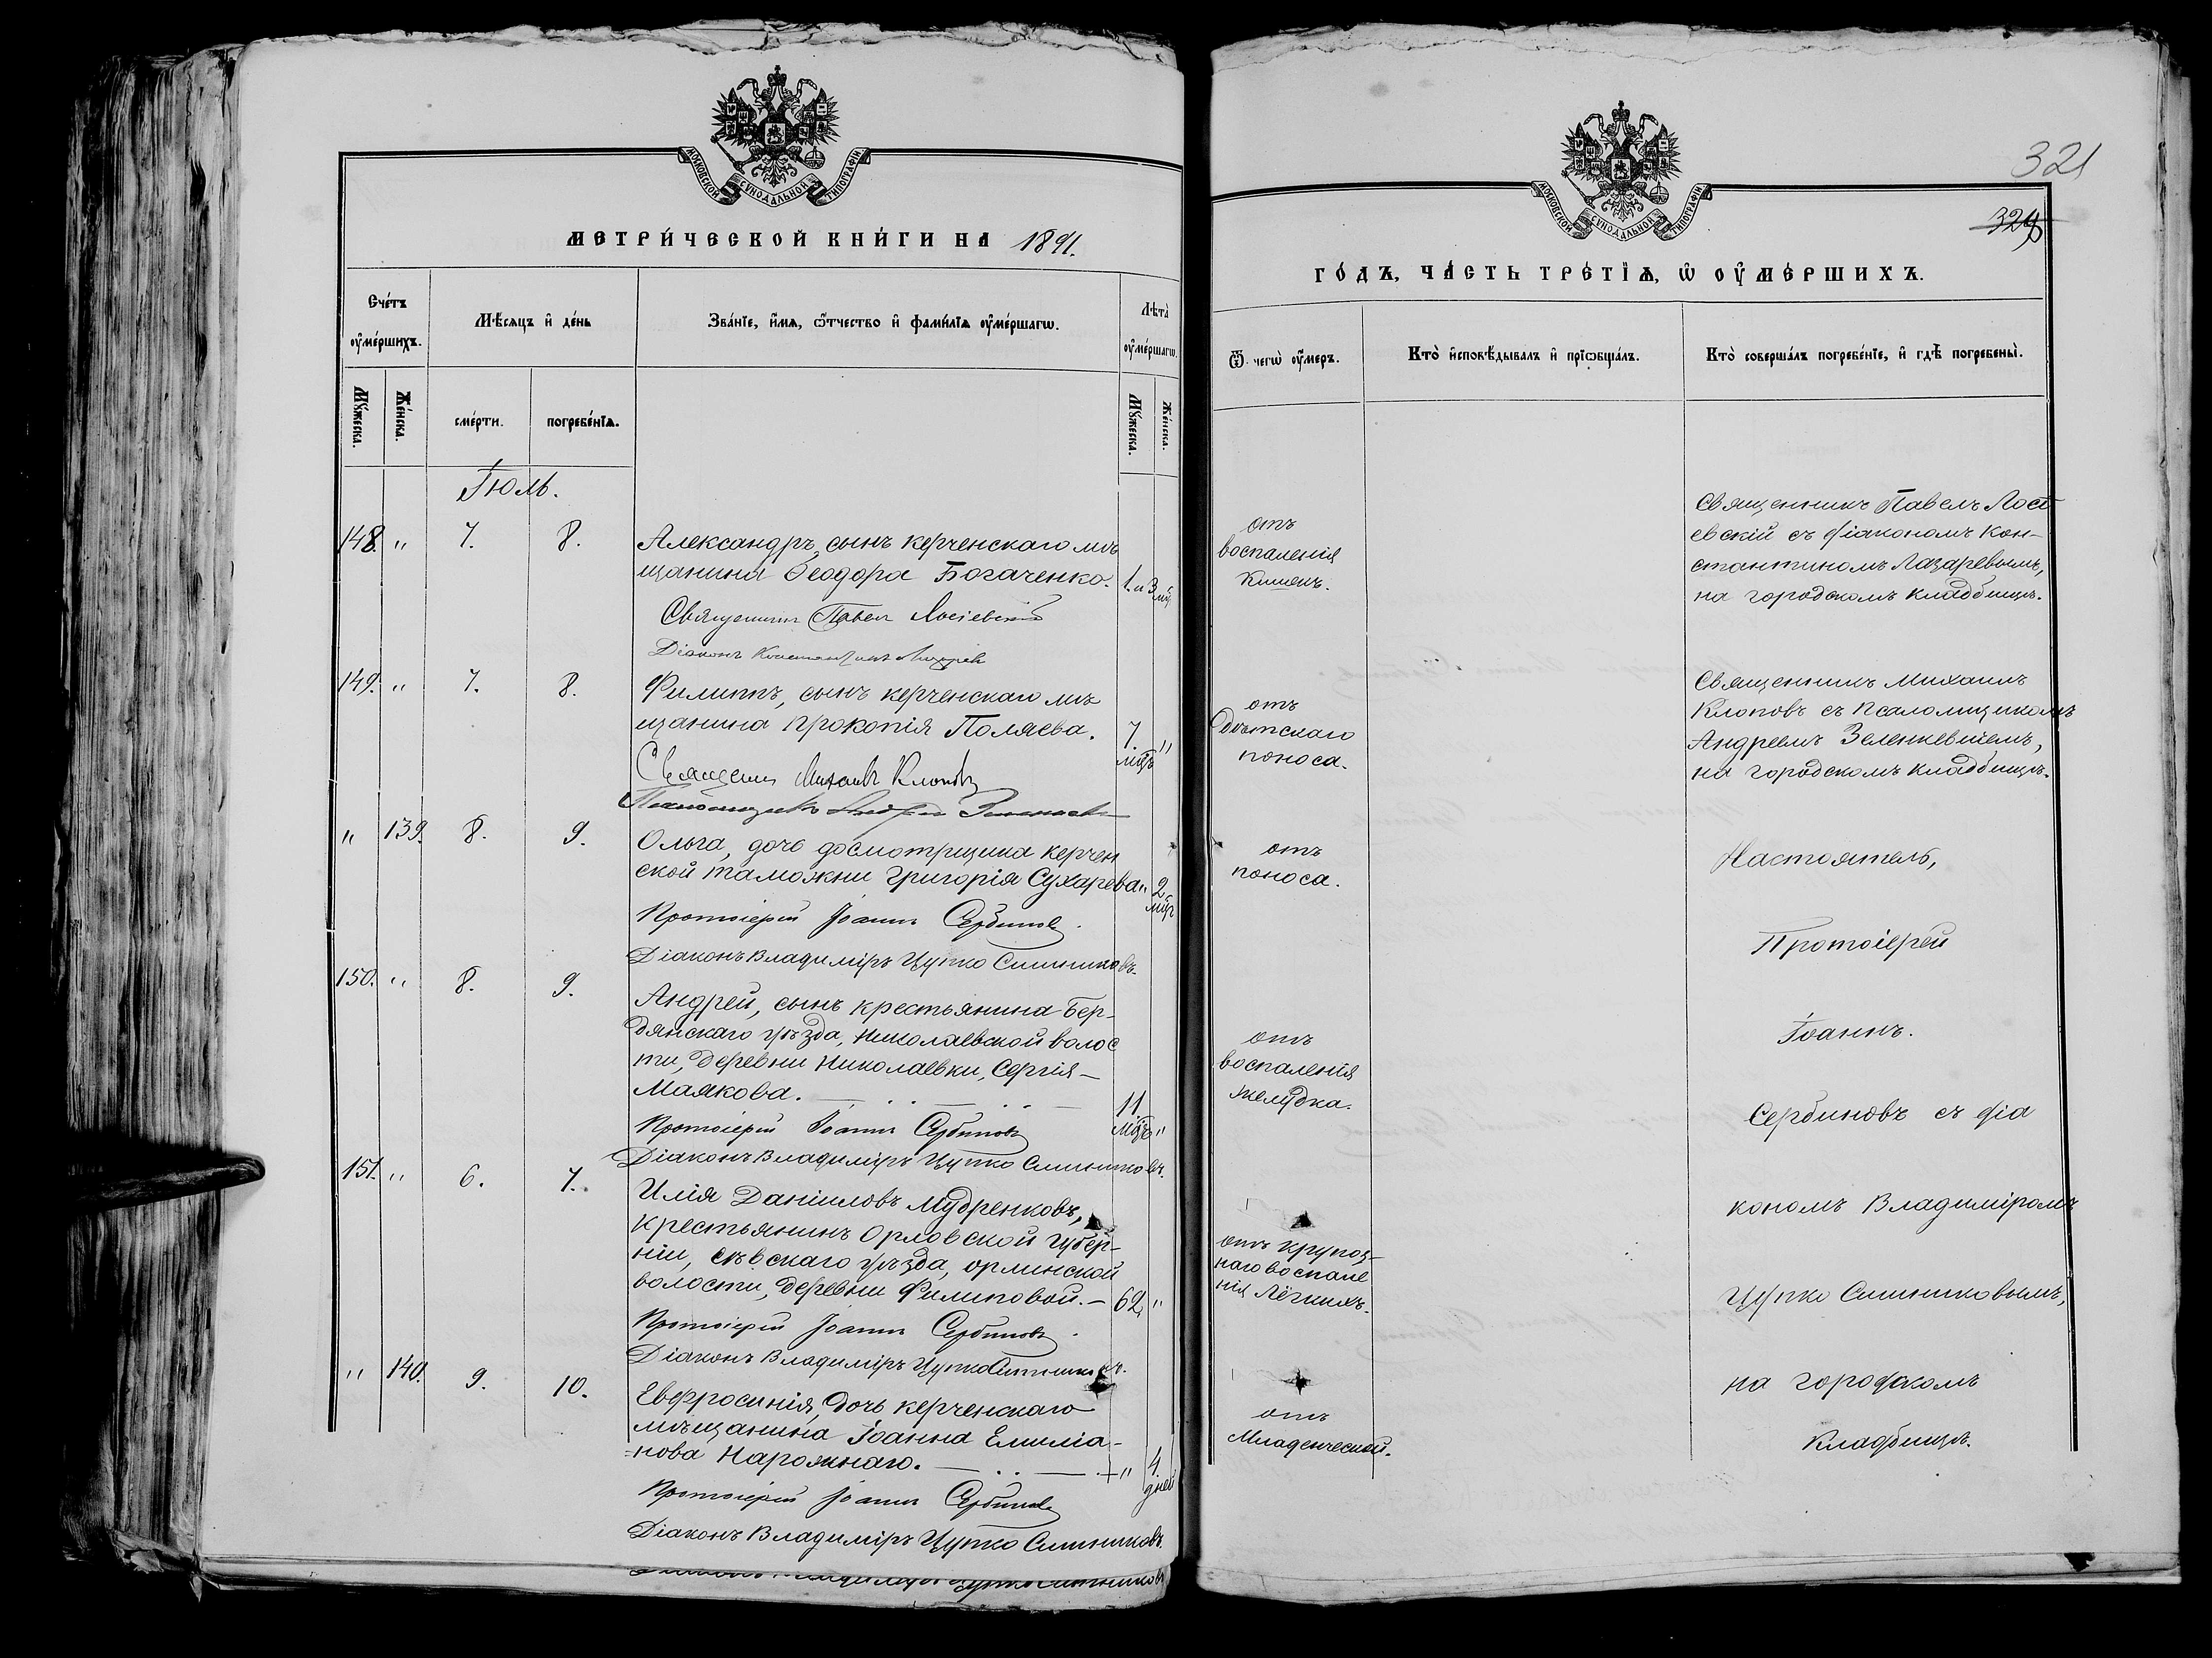 МОСКОВСКОЙ СѴНОДАЛЬНОЙ ТИПОГРАФІИ
МЕТРИ́ЧЕСКОЙ КНИ́ГИ НА 1891.
Счётъ оу҆ме́ршихъ.
Мѣ́сяцъ и҆ де́нь
Зва́нїе, и҆́мѧ, ѻ҆́тчество и҆ фами́лїѧ оу҆ме́ршагѡ.
Лѣта̀ оу҆ме́ршагѡ.
Мꙋ́жеска.
Же́нска.
сме́рти.
погребе́нїѧ.
Мꙋ́жеска.
Же́нска.
Іюль.
148. " 7. 8.
Александръ, сынъ керченскаго мѣ
щанина Ѳеодора Богаченко. 1. и 3 мц
Священникъ Павел Лосіевскій
Діаконъ Константинъ Лазарев
149. " 7. 8.
Филиппъ, сынъ керченскаго мѣ
щанина Прокопія Поляева. 7. мцъ "
Священник Михаилъ Клоповъ
Псаломщикъ Андрей
" 139. 8. 9.
Ольга, дочь досмотрщика керчен
ской таможни Григорія Сухарева " 2 мцъ
Протоіерей Іоаннъ Сербиновъ.
Діаконъ Владиміръ Цупко Ситниковъ.
150. " 8. 9.
Андрей, сынъ крестьянина Бер-
дянскаго уѣзда, Николаевской волос
ти, деревни Николаевки, Сергія
Маякова. 11. мцъ "
Протоіерей Іоаннъ Сербиновъ
Діаконъ Владиміръ Цупко Ситниковъ.
151. " 6. 7.
Илія Даніиловъ Мудренковъ,
крестьянинъ Орловской губер-
ніи, Сѣвскаго уѣзда, Орлинской
волости, деревни Филиповой. 62 "
Протоіерей Іоаннъ Сербиновъ.
Діаконъ Владиміръ Цупко Ситниковъ.
" 140. 9. 10.
Евфросинія, дочь керченскаго
мѣщанина Іоанна Емиліа-
нова Нарожнаго. " 4. дней
Протоіерей Іоаннъ Сербиновъ
Діаконъ Владиміръ Цупко Ситниковъ.
МОСКОВСКОЙ СѴНОДАЛЬНОЙ ТИПОГРАФІИ
321
ГО́ДЪ, ЧА́СТЬ ТРЕ́ТЇѦ, Ѡ҆ ОУ҆МЕ́РШИХЪ.
Ѿ чегѡ̀ оу҆́меръ.
Кто̀ и҆сповѣ́дывалъ и҆ прїѡбща́лъ.
Кто̀ соверша́лъ погребе́нїе, и҆ гдѣ̀ погребены̀.
отъ
воспаленія
кишекъ.
Священникъ Павелъ Лосі
евскій съ діакономъ Кон-
стантиномъ Лазаревымъ,
на городскомъ кладбищѣ.
отъ
дѣтскаго
поноса.
Священникъ Михаилъ
Клоповъ съ псаломщикомъ
Андреемъ Зеленкевичемъ,
на городскомъ кладбищѣ.
отъ
поноса.
Настоятель,
Протоіерей
отъ
воспаленія
желудка.
Іоаннъ.
Сербиновъ съ діа
отъ крупоз-
наго воспале
нія лёгкихъ.
кономъ Владиміромъ
Цупко Ситниковымъ,
отъ
Младенческой.
на городскомъ
кладбищѣ.